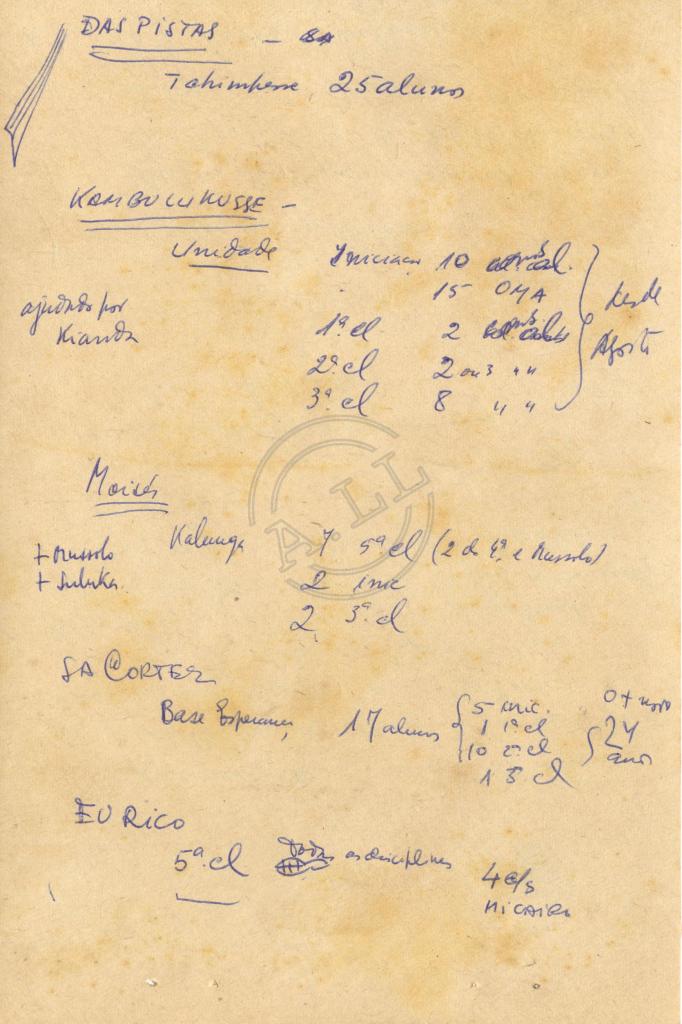 DAS PISTAS —
25 alunos
KAMBULUKUSSE —
Unidade Iniciaçao 10 al.
15 OMA
ajudado por
Kianda
1ª cl 2
2ª cl 2 ou 3 " "
3ª cl 8 " "
desde
Agosto
Moisés
Kalunga 7 5ª cl (2 da 4ª e Mussolo)
+ Mussolo
+ 2 inic
2 3ª cl
SA CORTEZ
Base Esperança, 17 alunos
5 inic.
1 1ª cl
10 2ª cl
1 3ª cl
O + novo
24
anos
EURICO
5ª cl Todas as disciplinas
4 cls
A.LL